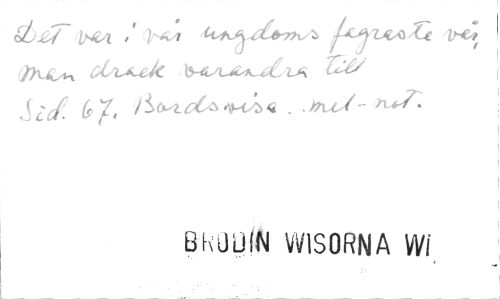 Det var i vår ungdoms fagraste vår,
man drack varandra till
Sid. 67. Bordsvisa. mel-not.
BRODIN WISORNA WI